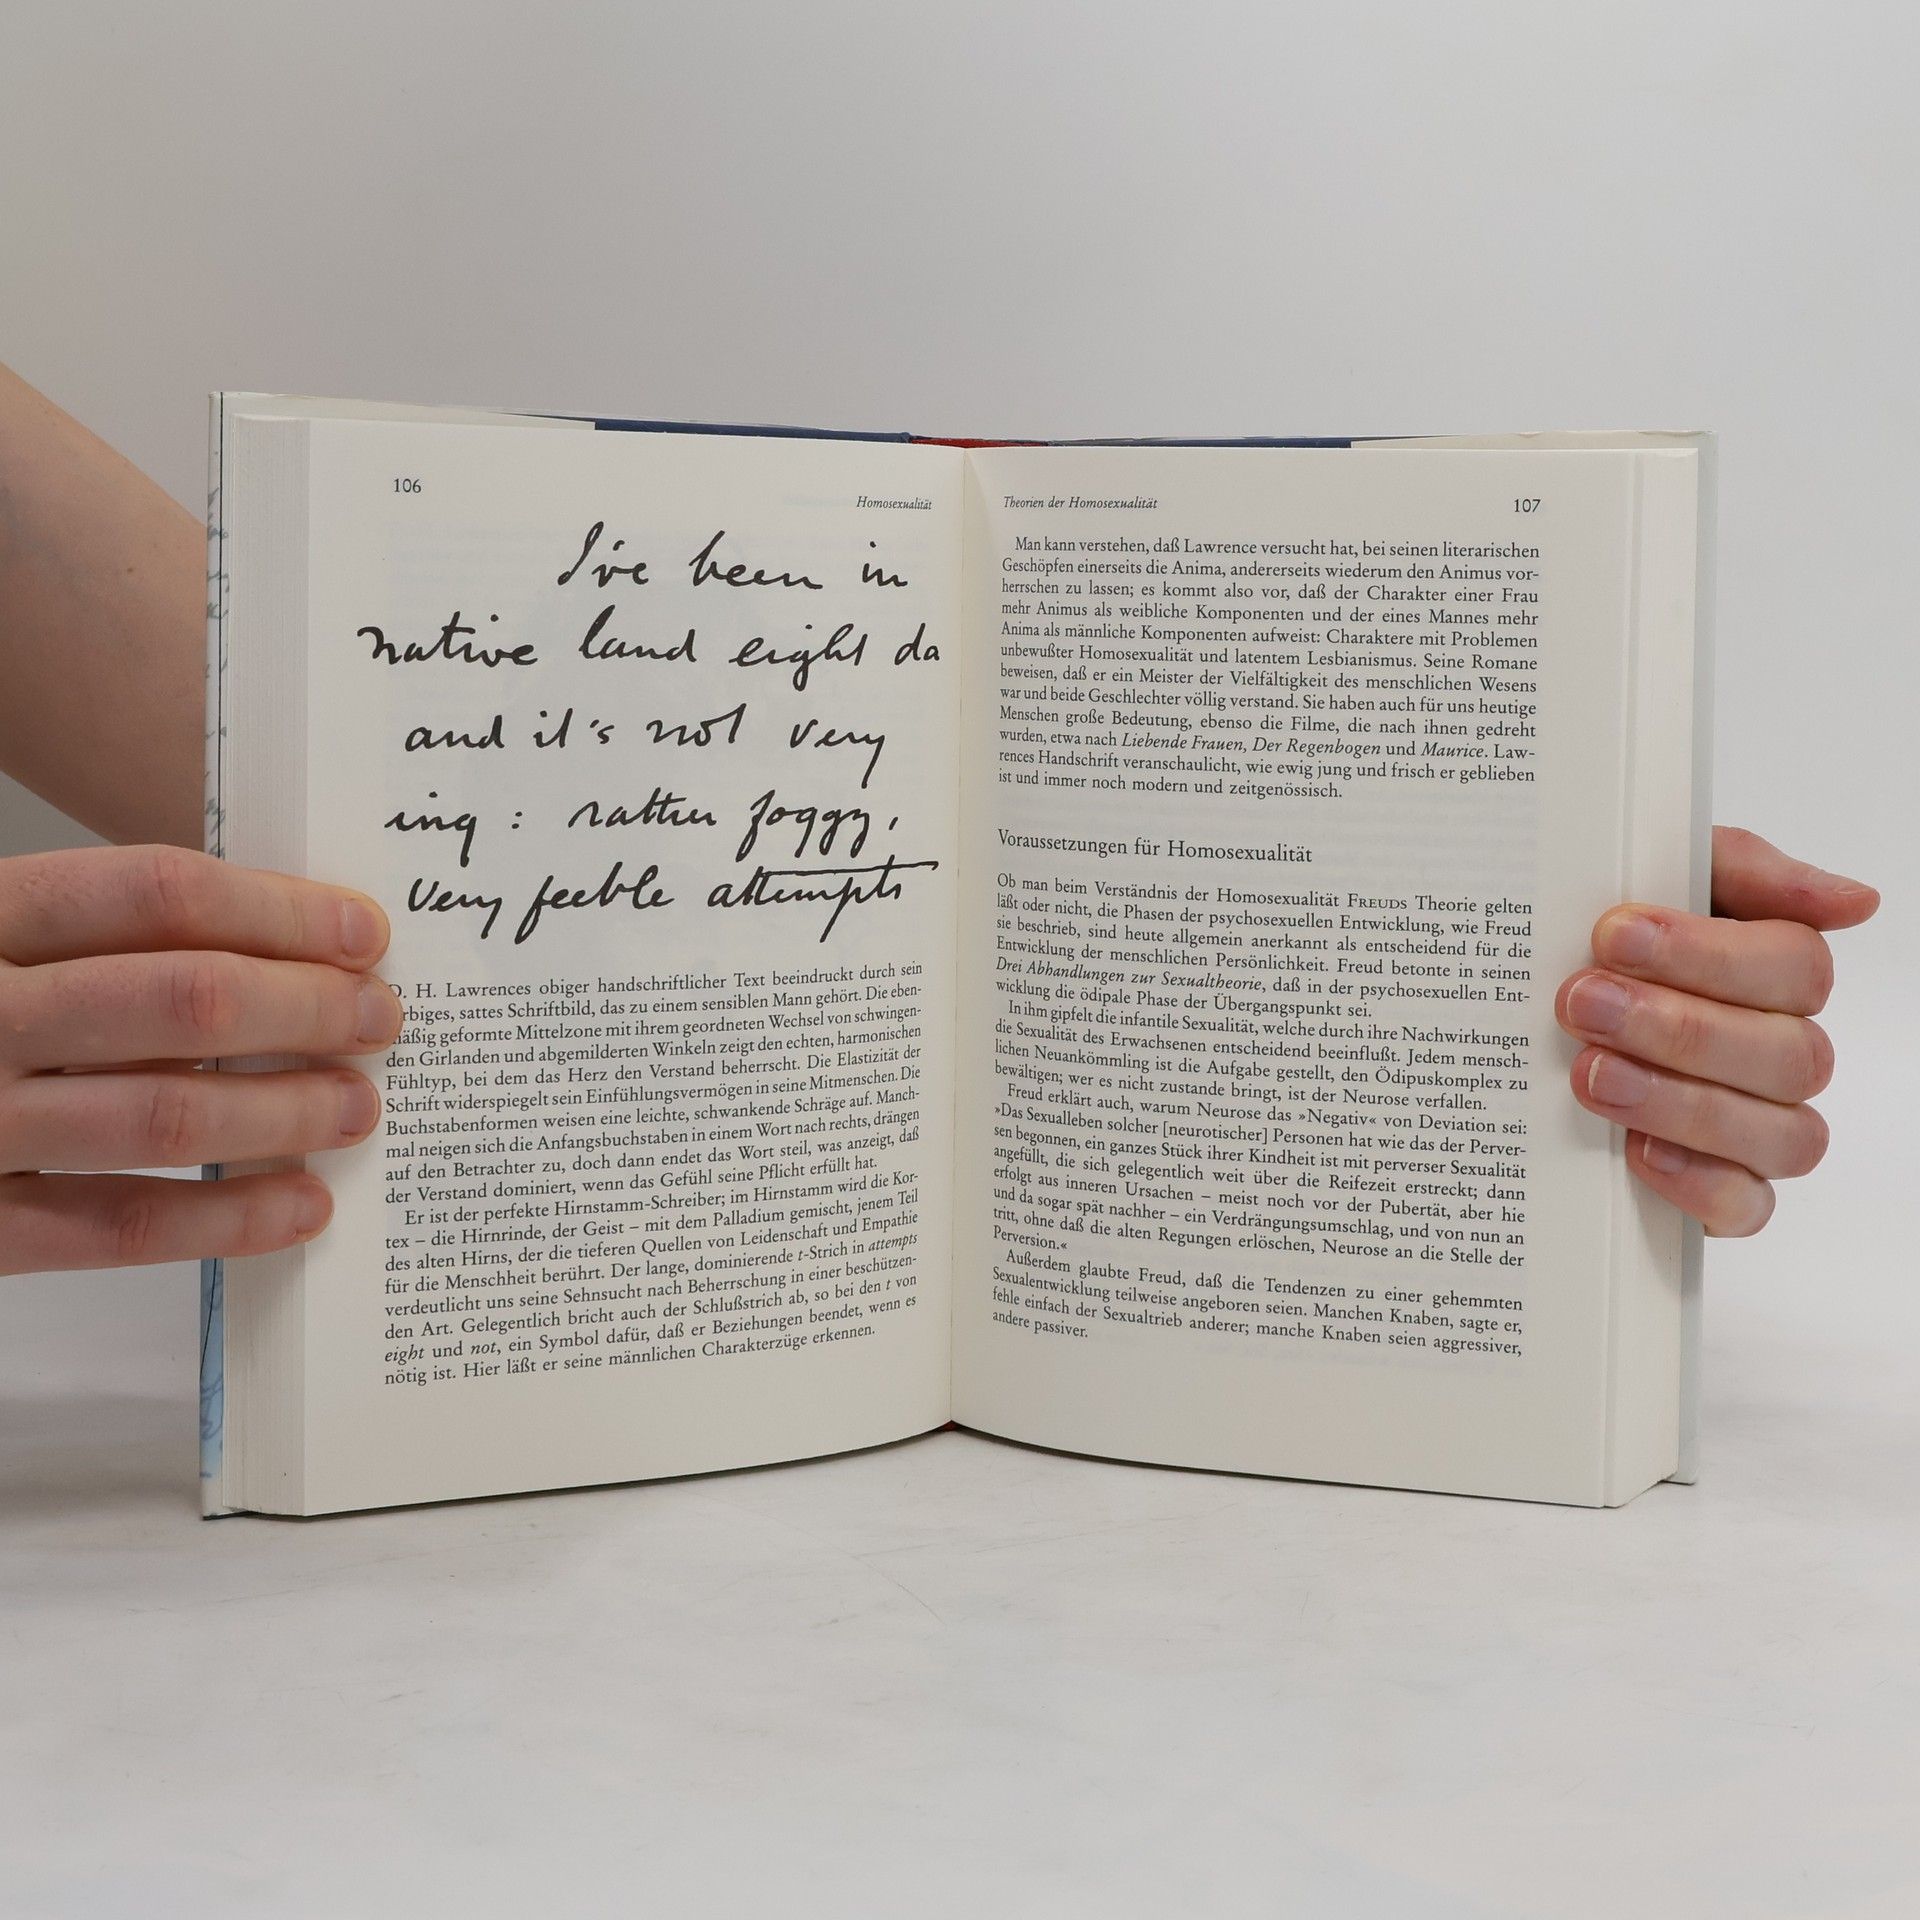 106
Homosexualität
I've been in
native land eight da
and it's not very
ing: rather foggy,
very feeble attempts
D. H. Lawrences obiger handschriftlicher Text beeindruckt durch sein
rbiges, sattes Schriftbild, das zu einem sensiblen Mann gehört. Die eben-
mäßig geformte Mittelzone mit ihrem geordneten Wechsel von schwingen-
den Girlanden und abgemilderten Winkeln zeigt den echten, harmonischen
Fühltyp, bei dem das Herz den Verstand beherrscht. Die Elastizität der
Schrift widerspiegelt sein Einfühlungsvermögen in seine Mitmenschen. Die
Buchstabenformen weisen eine leichte, schwankende Schräge auf. Manch-
mal neigen sich die Anfangsbuchstaben in einem Wort nach rechts, drängen
auf den Betrachter zu, doch dann endet das Wort steil, was anzeigt, daß
der Verstand dominiert, wenn das Gefühl seine Pflicht erfüllt hat.
Er ist der perfekte Hirnstamm-Schreiber; im Hirnstamm wird die Kor-
tex – die Hirnrinde, der Geist – mit dem Palladium gemischt, jenem Teil
des alten Hirns, der die tieferen Quellen von Leidenschaft und Empathie
für die Menschheit berührt. Der lange, dominierende t-Strich in attempts
verdeutlicht uns seine Sehnsucht nach Beherrschung in einer beschützen-
den Art. Gelegentlich bricht auch der Schlußstrich ab, so bei den t von
eight und not, ein Symbol dafür, daß er Beziehungen beendet, wenn es
nötig ist. Hier läßt er seine männlichen Charakterzüge erkennen.
Theorien der Homosexualität
107
Man kann verstehen, daß Lawrence versucht hat, bei seinen literarischen
Geschöpfen einerseits die Anima, andererseits wiederum den Animus vor-
herrschen zu lassen; es kommt also vor, daß der Charakter einer Frau
mehr Animus als weibliche Komponenten und der eines Mannes mehr
Anima als männliche Komponenten aufweist: Charaktere mit Problemen
unbewußter Homosexualität und latentem Lesbianismus. Seine Romane
beweisen, daß er ein Meister der Vielfältigkeit des menschlichen Wesens
war und beide Geschlechter völlig verstand. Sie haben auch für uns heutige
Menschen große Bedeutung, ebenso die Filme, die nach ihnen gedreht
wurden, etwa nach Liebende Frauen, Der Regenbogen und Maurice. Law-
rences Handschrift veranschaulicht, wie ewig jung und frisch er geblieben
ist und immer noch modern und zeitgenössisch.
Voraussetzungen für Homosexualität
Ob man beim Verständnis der Homosexualität FREUDS Theorie gelten
läßt oder nicht, die Phasen der psychosexuellen Entwicklung, wie Freud
sie beschrieb, sind heute allgemein anerkannt als entscheidend für die
Entwicklung der menschlichen Persönlichkeit. Freud betonte in seinen
Drei Abhandlungen zur Sexualtheorie, daß in der psychosexuellen Ent-
wicklung die ödipale Phase der Übergangspunkt sei.
In ihm gipfelt die infantile Sexualität, welche durch ihre Nachwirkungen
die Sexualität des Erwachsenen entscheidend beeinflußt. Jedem mensch-
lichen Neuankömmling ist die Aufgabe gestellt, den Ödipuskomplex zu
bewältigen; wer es nicht zustande bringt, ist der Neurose verfallen.
Freud erklärt auch, warum Neurose das »Negativ« von Deviation sei:
»Das Sexualleben solcher [neurotischer] Personen hat wie das der Perver-
sen begonnen, ein ganzes Stück ihrer Kindheit ist mit perverser Sexualität
angefüllt, die sich gelegentlich weit über die Reifezeit erstreckt; dann
erfolgt aus inneren Ursachen – meist noch vor der Pubertät, aber hie
und da sogar spät nachher – ein Verdrängungsumschlag, und von nun an
tritt, ohne daß die alten Regungen erlöschen, Neurose an die Stelle der
Perversion.«
Außerdem glaubte Freud, daß die Tendenzen zu einer gehemmten
Sexualentwicklung teilweise angeboren seien. Manchen Knaben, sagte er,
fehle einfach der Sexualtrieb anderer; manche Knaben seien aggressiver,
andere passiver.